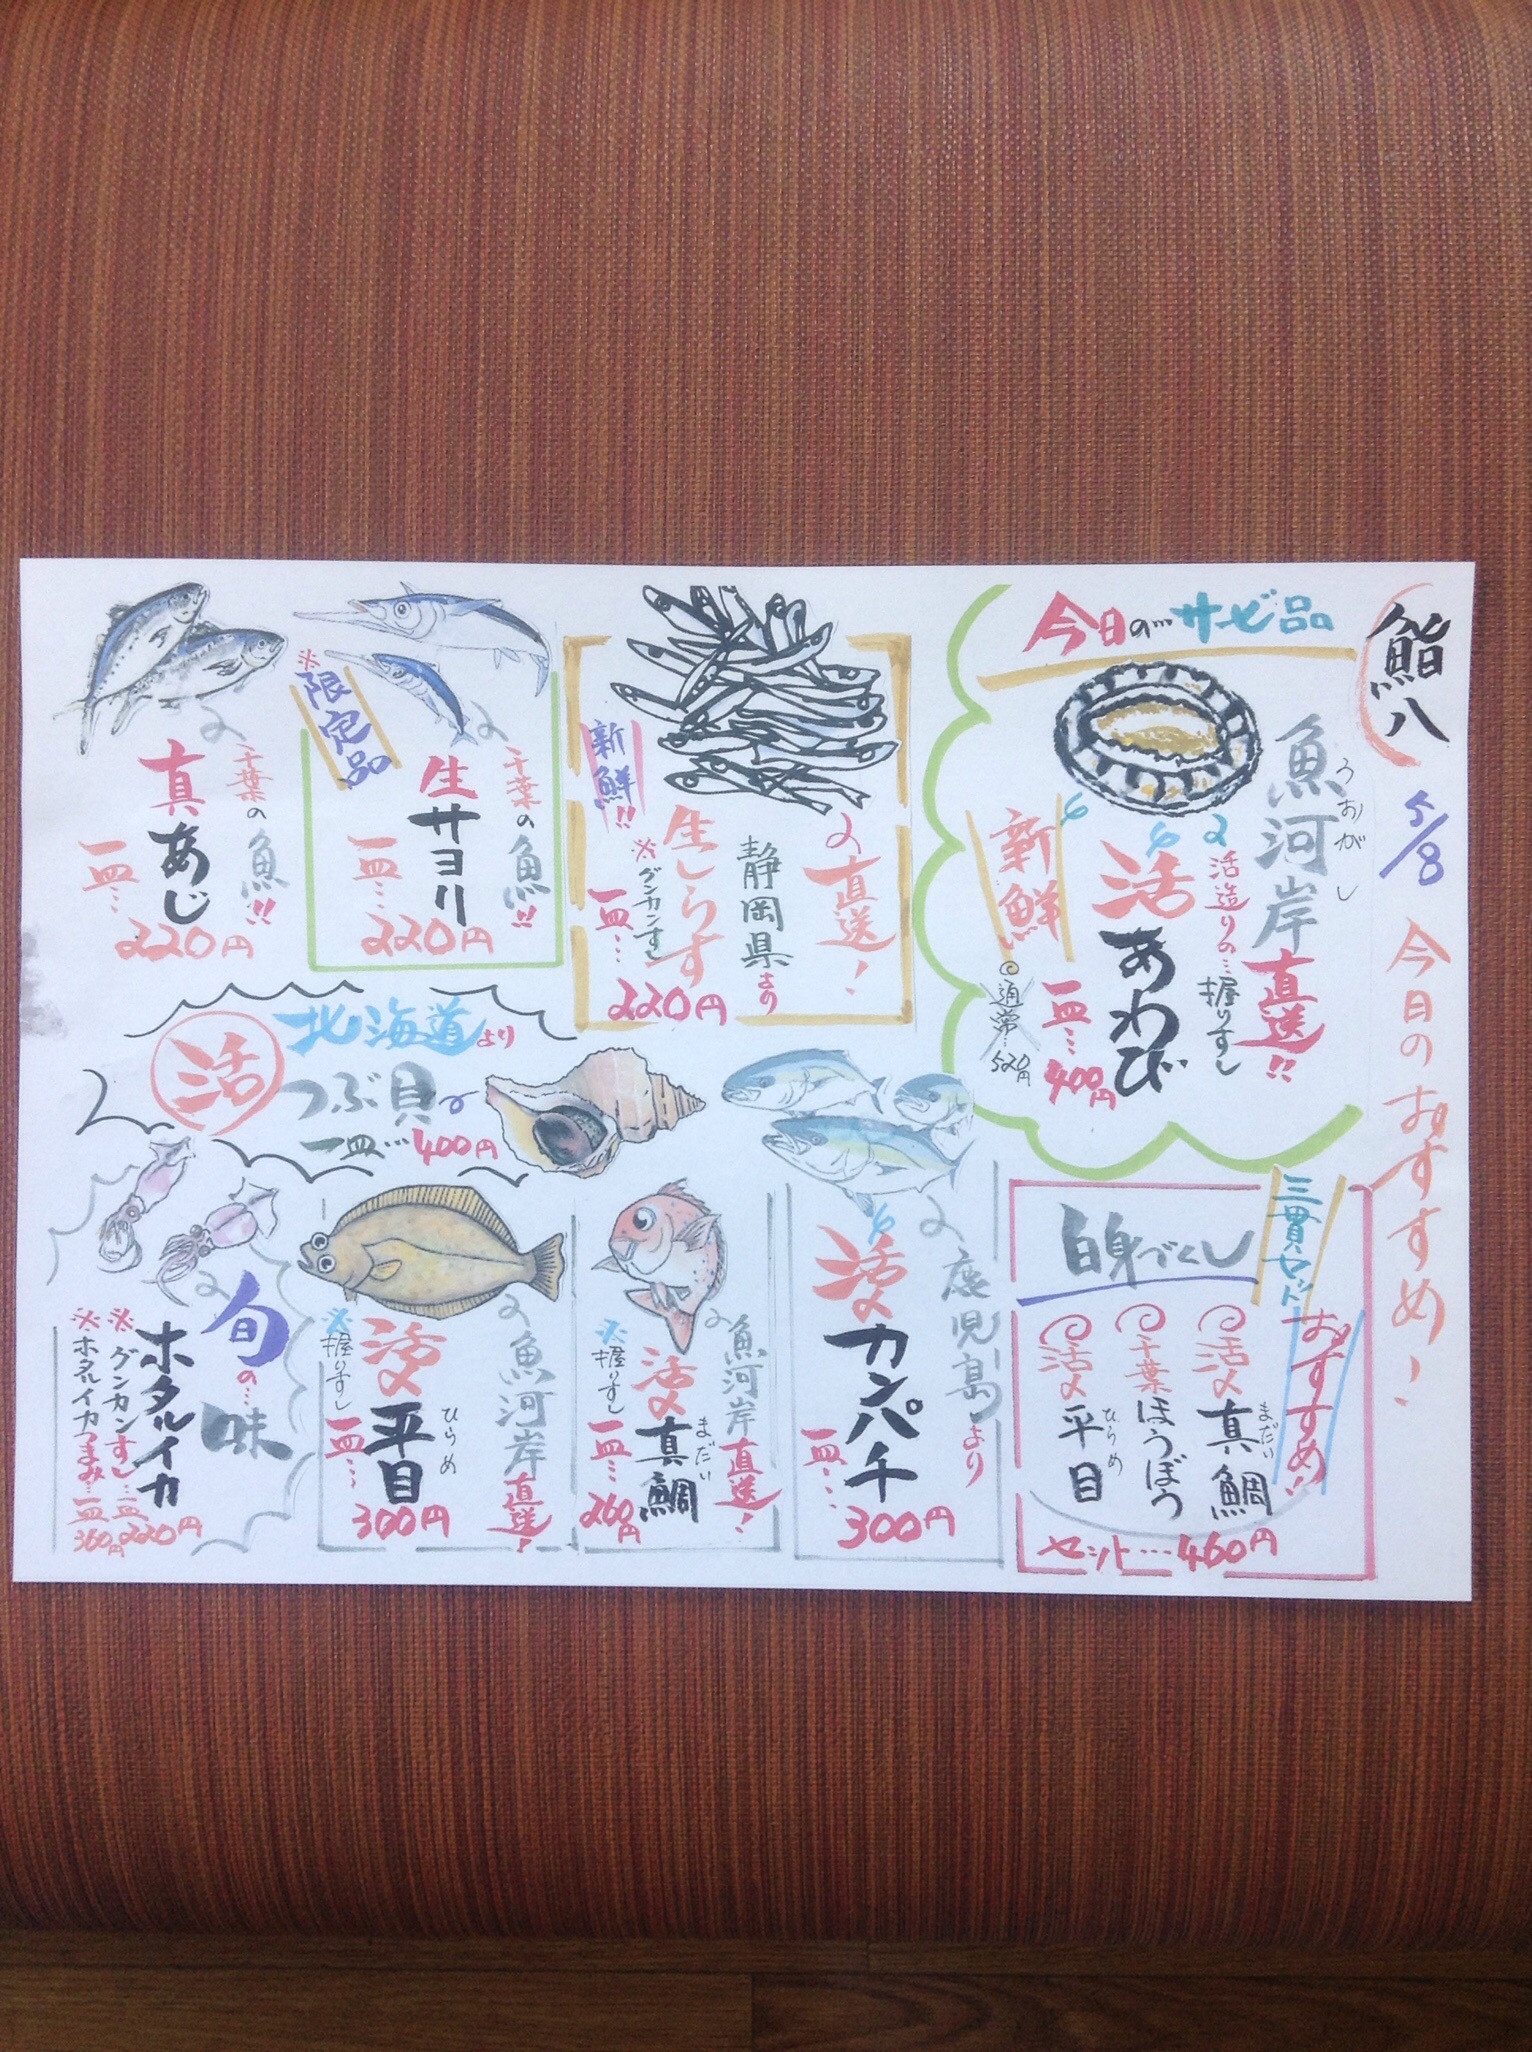 鮨八
5/8
今日のおすすめ!
今日の…サービ品
魚河岸
うおがし
直送!!
活造りの…握りずし
活あわび
新鮮
一皿…400円
通常…520円
直送!
静岡県より
生しらす
※グンカンすし
一皿…220円
新鮮!!
千葉の魚!!
生サヨリ
一皿…220円
※限定品
千葉の魚!!
真あじ
一皿…220円
北海道より
活
つぶ貝
一皿…400円
三貫セット
おすすめ!!
白身づくし
活〆真鯛
まだい
千葉ほうぼう
活〆平目
ひらめ
セット…460円
鹿児島より
活〆カンパチ
一皿…300円
魚河岸直送!
活〆真鯛
まだい
※握りすし
一皿…260円
魚河岸直送!
活〆平目
ひらめ
※握りすし
一皿…300円
旬の…味
ホタルイカ
※グンカンすし…一皿220円
※ホタルイカつまみ…一皿360円